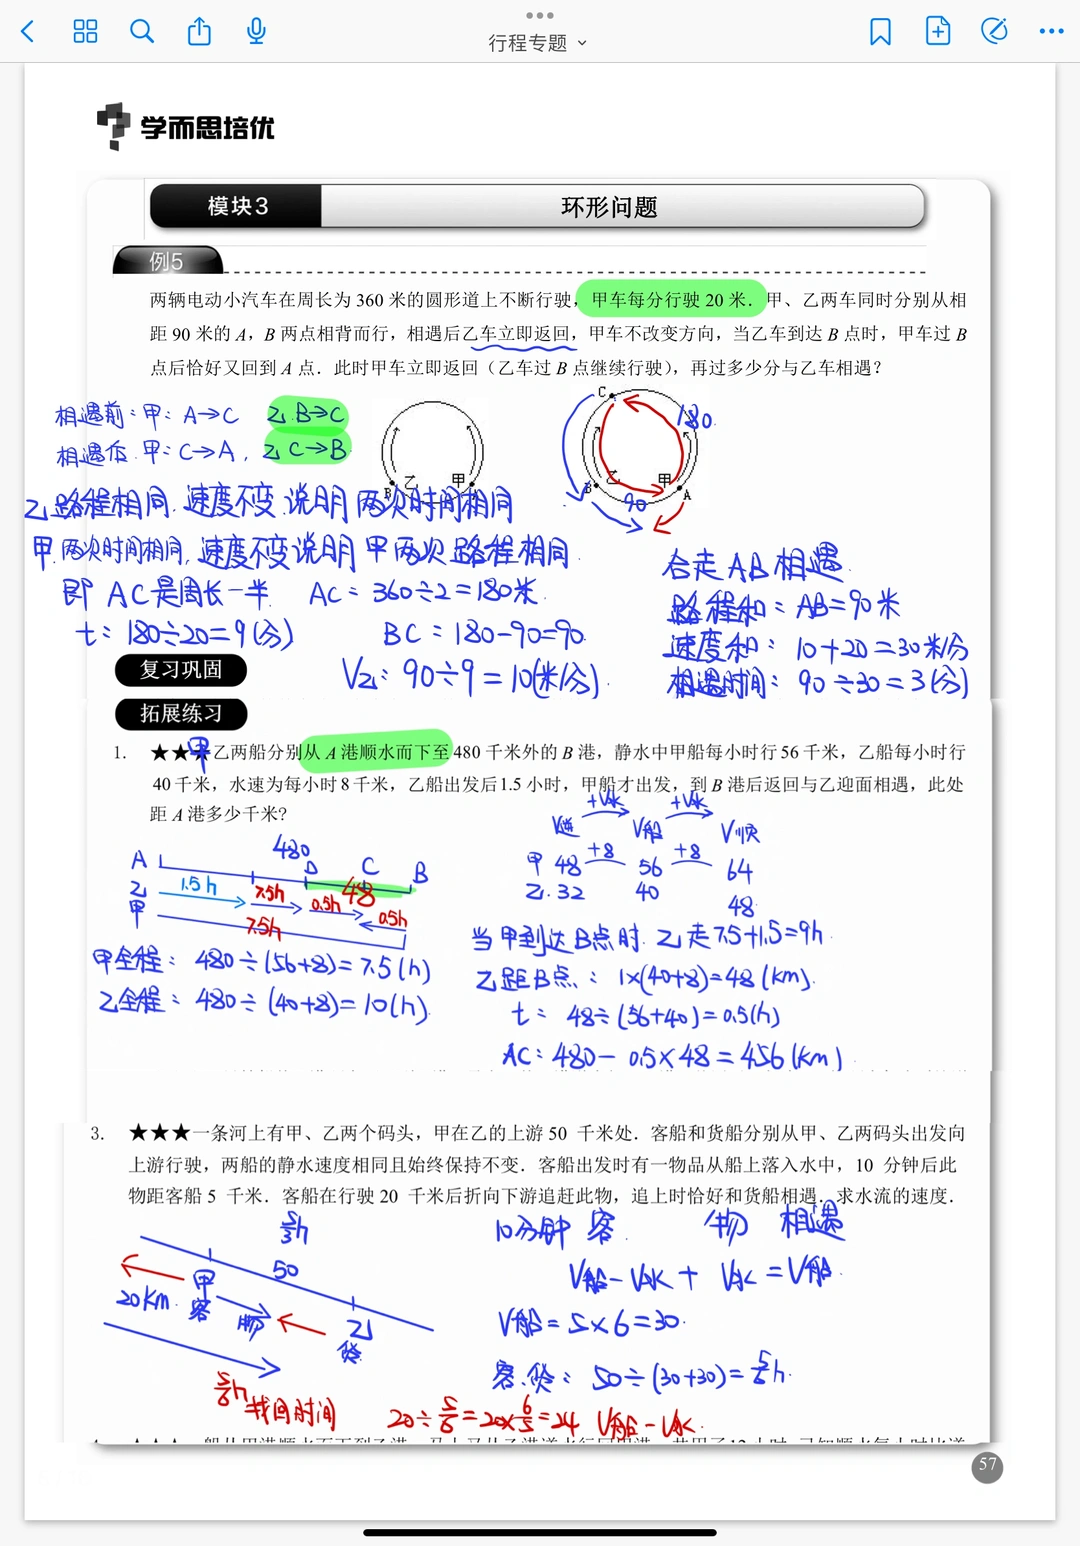 行程专题
学而思培优
模块3
环形问题
例5
两辆电动小汽车在周长为 360 米的圆形道上不断行驶，甲车每分行驶 20 米．甲、乙两车同时分别从相
距 90 米的 A，B 两点相背而行，相遇后乙车立即返回，甲车不改变方向，当乙车到达 B 点时，甲车过 B
点后恰好又回到 A 点．此时甲车立即返回（乙车过 B 点继续行驶），再过多少分与乙车相遇？
相遇前：甲：A→C 乙 B→C
相遇后 甲：C→A，乙 C→B
B 乙 甲
C 180
B 乙 甲 A
90
乙路程相同，速度不变 说明两次时间相同
甲两次时间相同，速度不变说明甲两次路程相同
即 AC是周长一半 AC：360÷2=180米
t：180÷20=9(分) BC：180-90=90
V乙：90÷9=10(米/分)
合走AB相遇
路程和：AB=90米
速度和：10+20=30米/分
相遇时间：90÷30=3(分)
复习巩固
拓展练习
1. ★★★甲乙两船分别从 A 港顺水而下至 480 千米外的 B 港，静水中甲船每小时行 56 千米，乙船每小时行
40 千米，水速为每小时 8 千米，乙船出发后 1.5 小时，甲船才出发，到 B 港后返回与乙迎面相遇，此处
距 A 港多少千米？
480
A D C B
乙 1.5h 7.5h 0.5h 48 0.5h
甲 7.5h
+V水 +V水
V逆 V船 V顺
甲 48 +8 56 +8 64
乙. 32 40 48
甲全程：480÷(56+8)=7.5(h)
乙全程：480÷(40+8)=10(h)
当甲到达B点时 乙走7.5+1.5=9h
乙距B点：1×(40+8)=48(km)
t：48÷(56+40)=0.5(h)
AC：480-0.5×48=456(km)
3. ★★★一条河上有甲、乙两个码头，甲在乙的上游 50 千米处．客船和货船分别从甲、乙两码头出发向
上游行驶，两船的静水速度相同且始终保持不变．客船出发时有一物品从船上落入水中，10 分钟后此
物距客船 5 千米．客船在行驶 20 千米后折向下游追赶此物，追上时恰好和货船相遇．求水流的速度．
5/3h
50
甲 客
20km
乙 货
5/6h 找回时间
10分钟 客 物 相遇
V船-V水+V水=V船
V船=5×6=30
客.货：50÷(30+30)=5/6h
20÷5/6=20×6/5=24 V船-V水
57